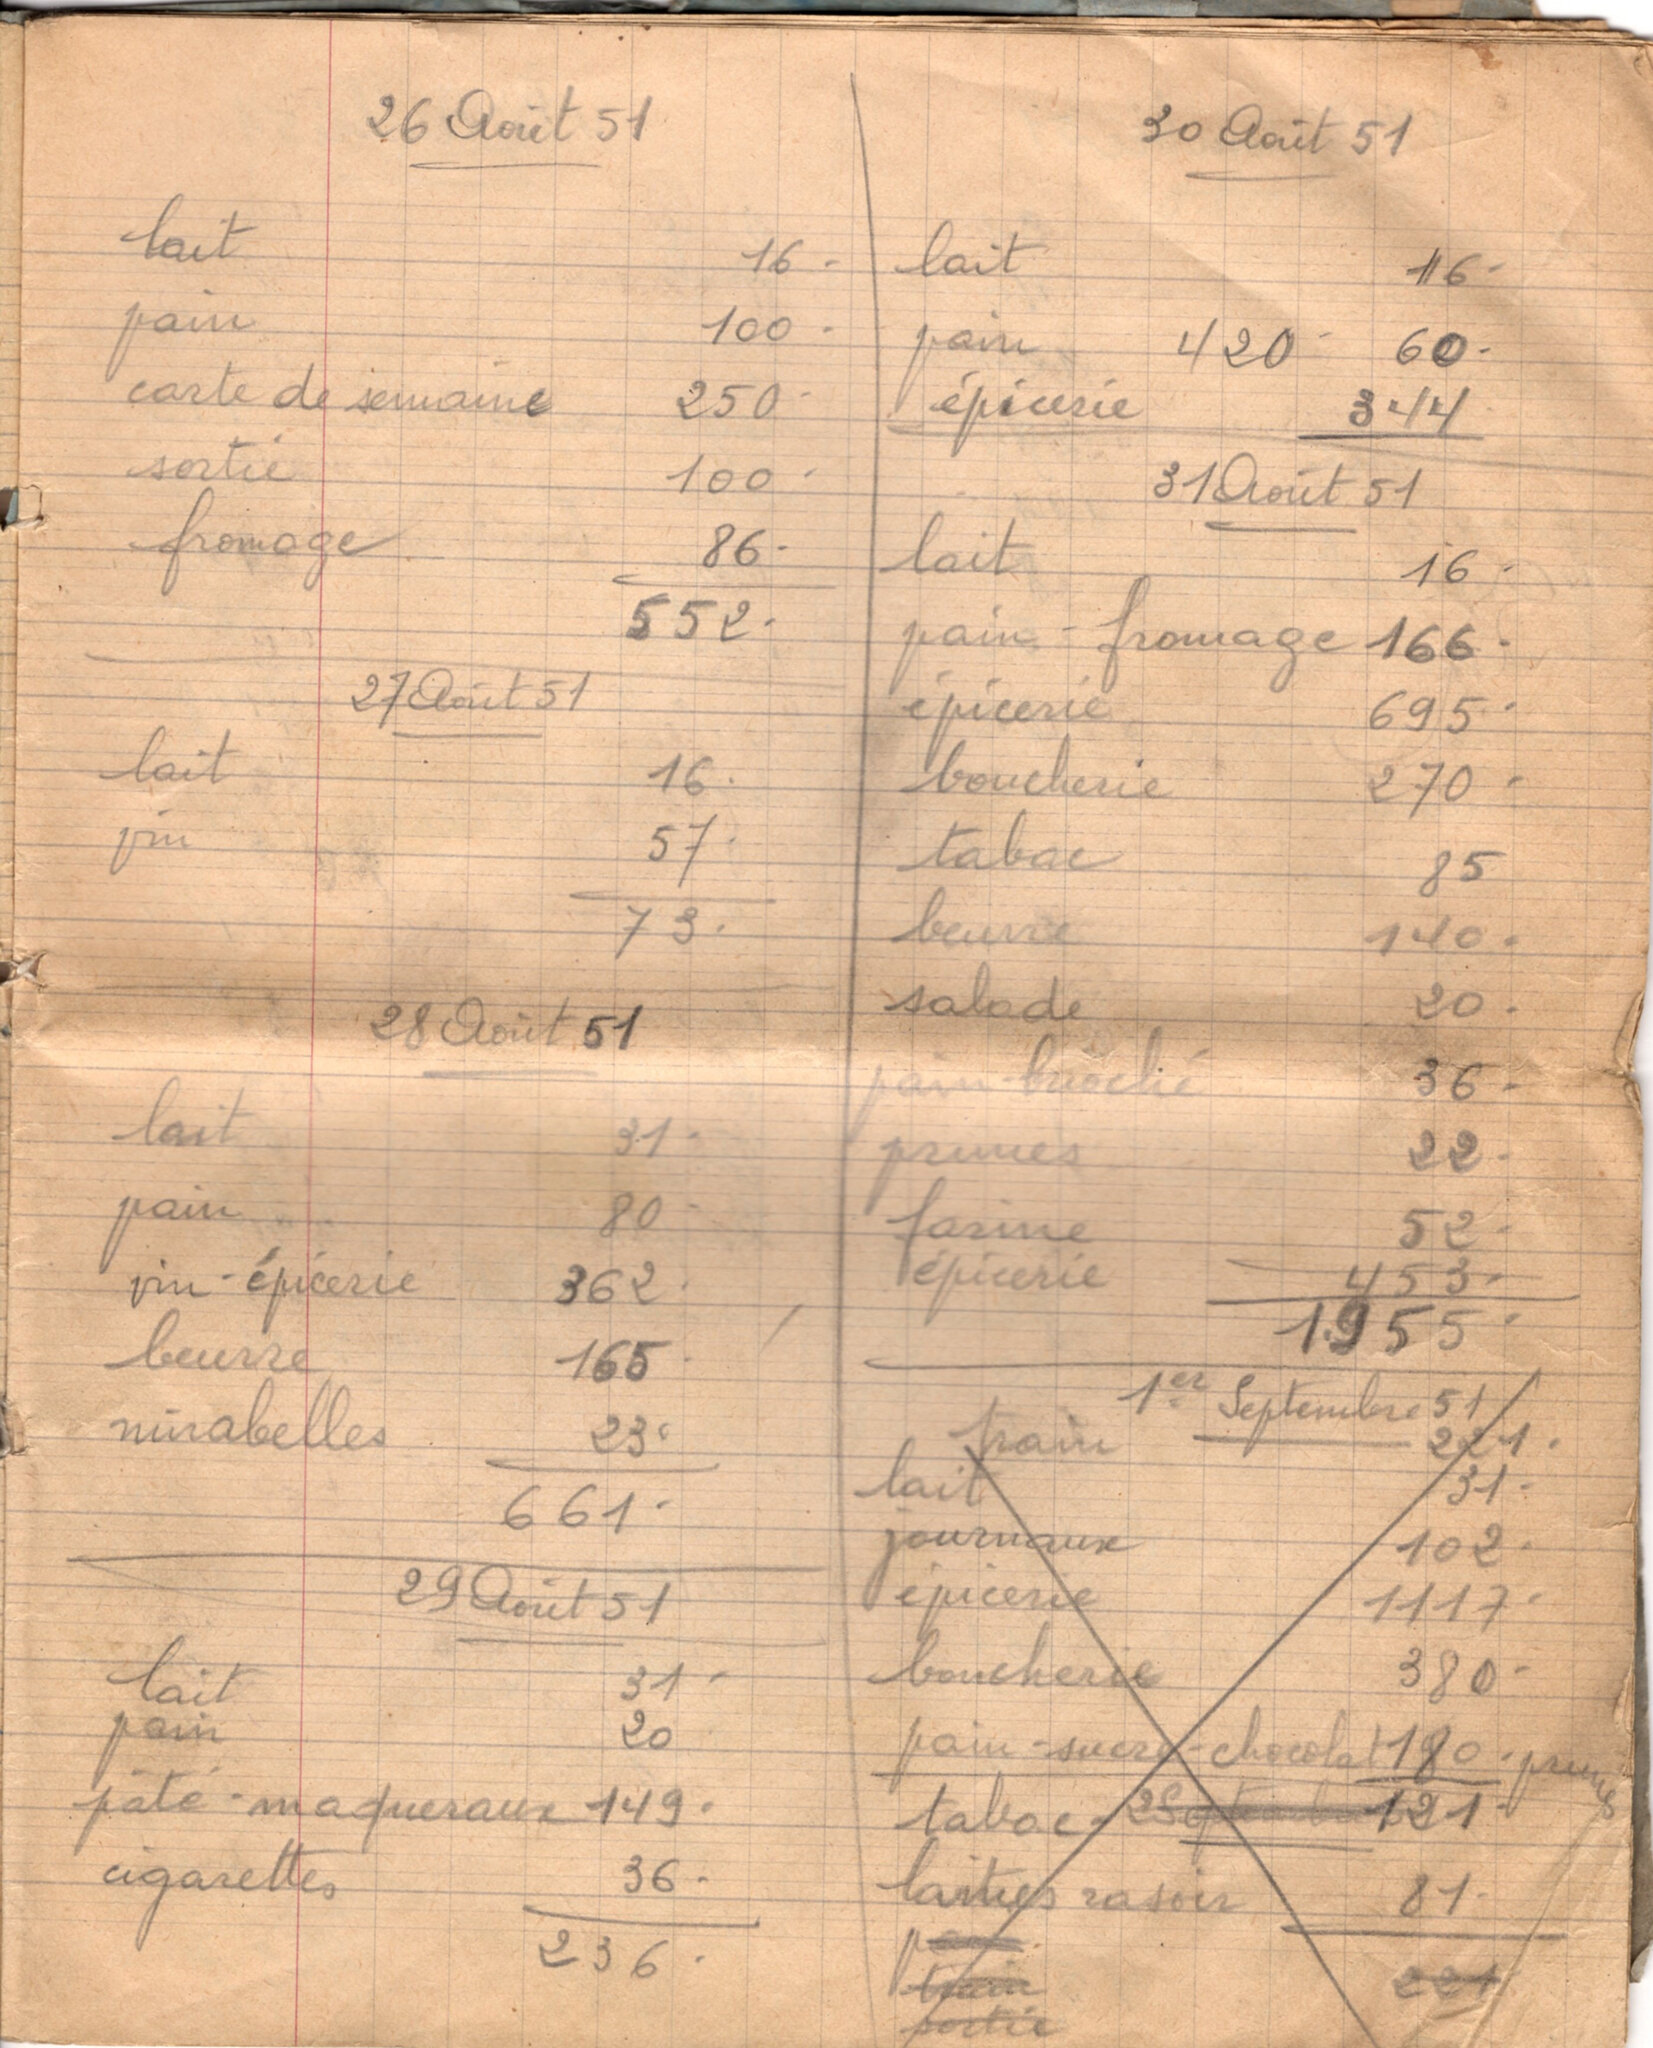 26 Août 51
lait 16.
pain 100.
carte de semaine 250.
sortie 100.
fromage 86.
552.
27 Août 51
lait 16.
vin 57.
73.
28 Août 51
lait 31.
pain 80.
vin - épicerie 362.
beurre 165.
mirabelles 23.
661.
29 Août 51
lait 31.
pain 20
pâté - maqueraux 149.
cigarettes 36.
236.
30 Août 51
lait 16.
pain 420. 60.
épicerie 344.
31 Août 51
lait 16.
pain - fromage 166.
épicerie 695.
boucherie 270.
tabac 85
beurre 140.
salade 20.
pain brioché 36.
prunes 22.
farine 52.
épicerie 453.
1955.
1er Septembre 51
train 221.
lait 31.
journaux 102.
épicerie 1117.
boucherie 380.
pain - sucre - chocolat 180. prunes
tabac - 2 Septembre 121.
rasoir 81.
train 221
sortie